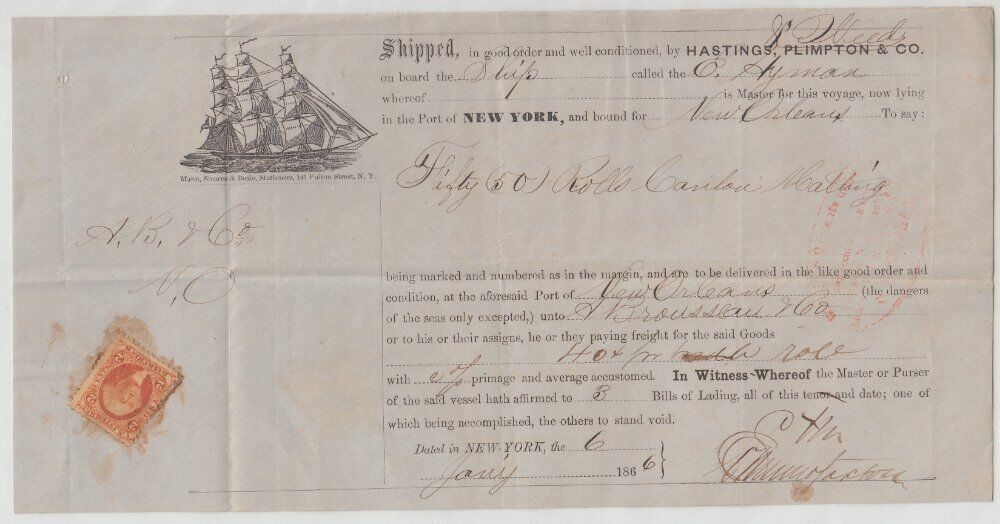 Shipped, in good order and well conditioned, by HASTINGS, PLIMPTON & CO.
on board the Ship called the E. Hyman
whereof is Master for this voyage, now lying
in the Port of NEW YORK, and bound for New Orleans To say:
Mann, Stearns & Beale, Stationers, 141 Fulton Street, N. Y.
Fifty (50) Rolls Canton Matting
A. B. & Co
N. O
being marked and numbered as in the margin, and are to be delivered in the like good order and
condition, at the aforesaid Port of New Orleans (the dangers
of the seas only excepted,) unto A Brousseau & Co
or to his or their assigns, he or they paying freight for the said Goods
40 roll
with primage and average accustomed. In Witness Whereof the Master or Purser
of the said vessel hath affirmed to 3 Bills of Lading, all of this tenor and date; one of
which being accomplished, the others to stand void.
Dated in NEW-YORK, the 6
Jany 1866